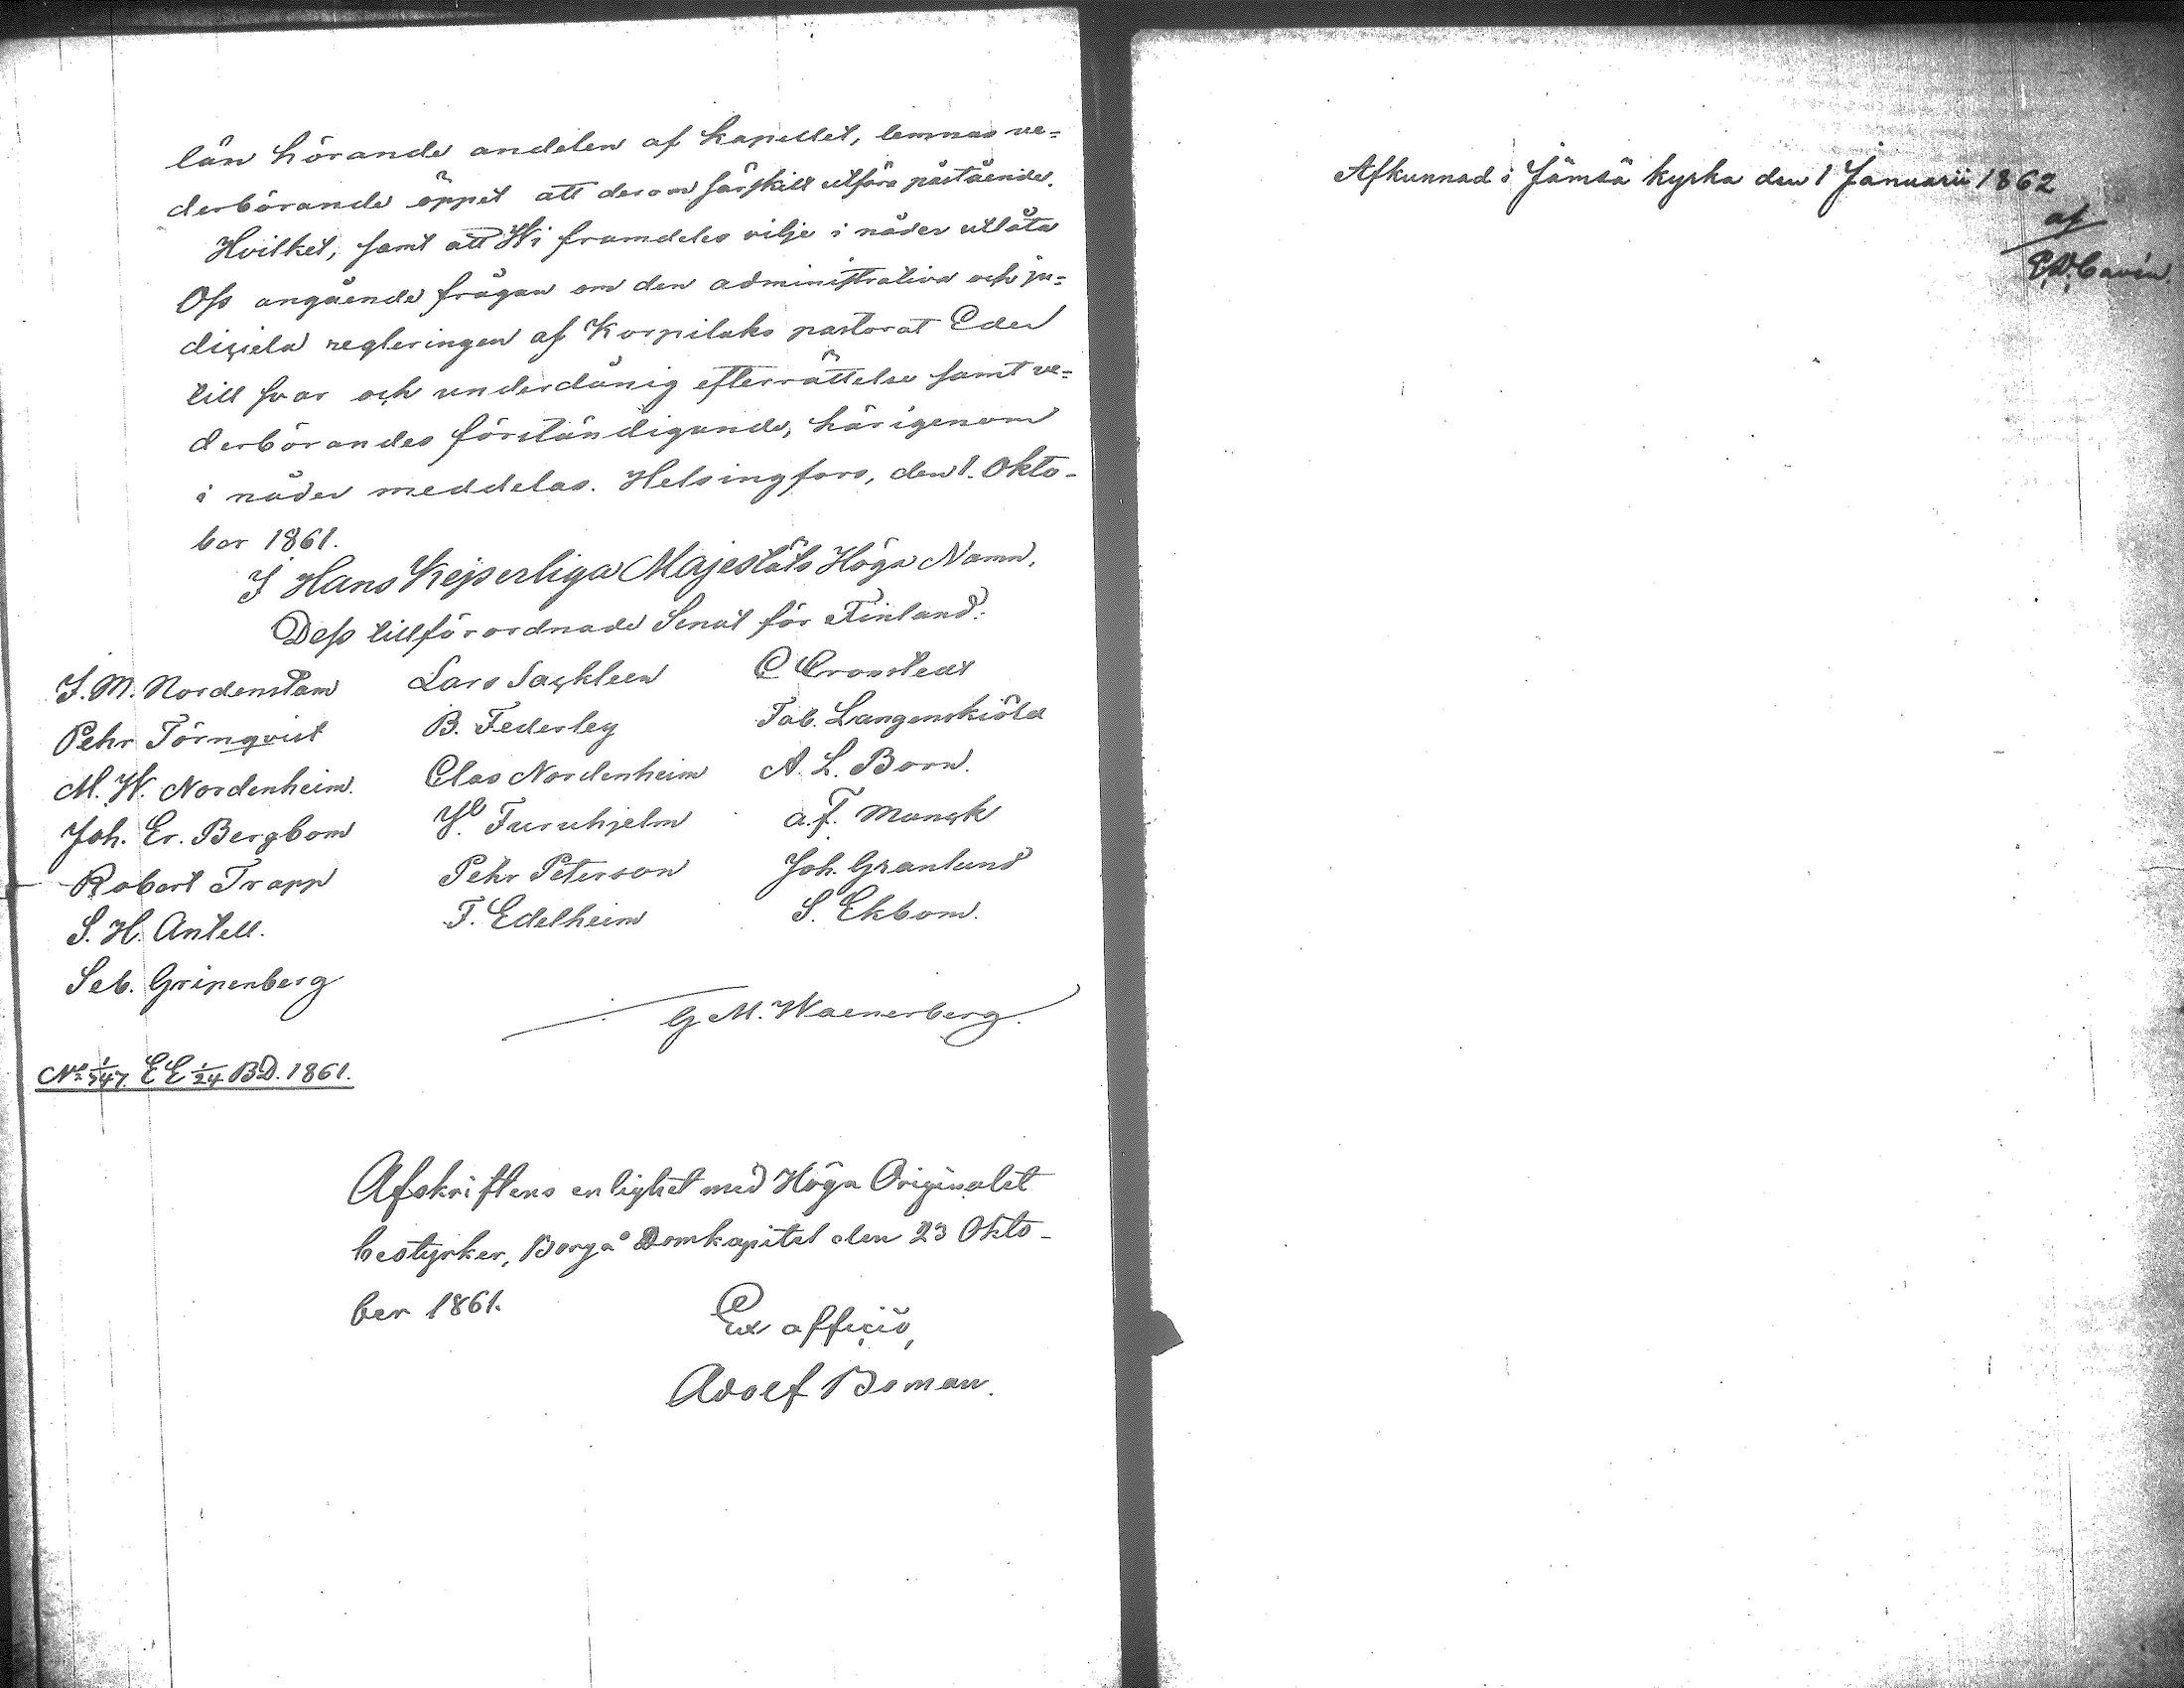 län hörande andelen af kapellet, lemnas ve=
derbörande öppet att derom särskilt utföra påstående.
Hvilket, samt att Wi framdeles vilje i nåder utlåta
Oss angående frågan om den administrativa och ju=
diciela regleringen af Korpilaks pastorat Eder
till svar och underdånig efterrättelse samt ve=
derbörandes förständigande, härigenom
i nåder meddelas. Helsingfors, den 1. Okto-
ber 1861.
I Hans Kejserliga Majestäts Höga Namn,
Dess tillförordnade Senat för Finland:
J. M. Nordenstam Lars Sackleen C Cronstedt
Pehr Törnqvist B. Federley Fab. Langenskiöld
M. W. Nordenheim. Clas Nordenheim A. L. Born.
Joh. Er. Bergbom Hj. Furuhjelm A. F. Munck
Robert Trapp Pehr Peterson Joh. Granlund
S. H. Antell. F. Edelheim S. Ekbom.
Seb. Gripenberg
G M. Waenerberg.
EE 1/24 BD. 1861.
Afskriftens enlighet med Höga Originalet
bestyrker, Borgå Domkapitel den 23 Okto-
ber 1861.
Ex officio,
Adolf Boman.
Afkunnad i Jämsä kyrka den 1 Januarii 1862
af
Cavén.